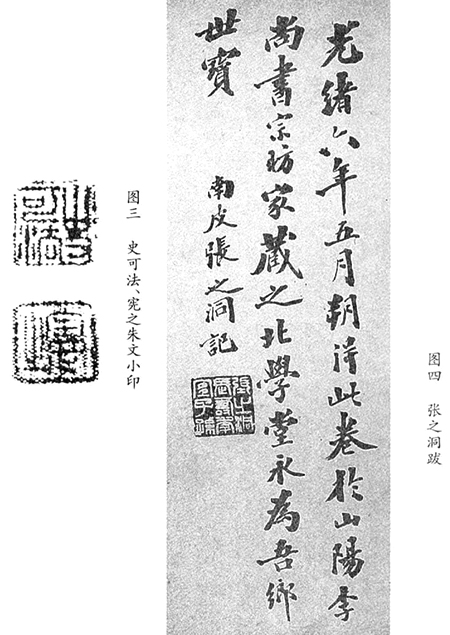 光緒六年五月朔得此卷於山陽李
尚書宗昉家藏之北學堂永為吾鄉
世寶
南皮張之洞記
图三 史可法、宪之朱文小印
图四 张之洞跋